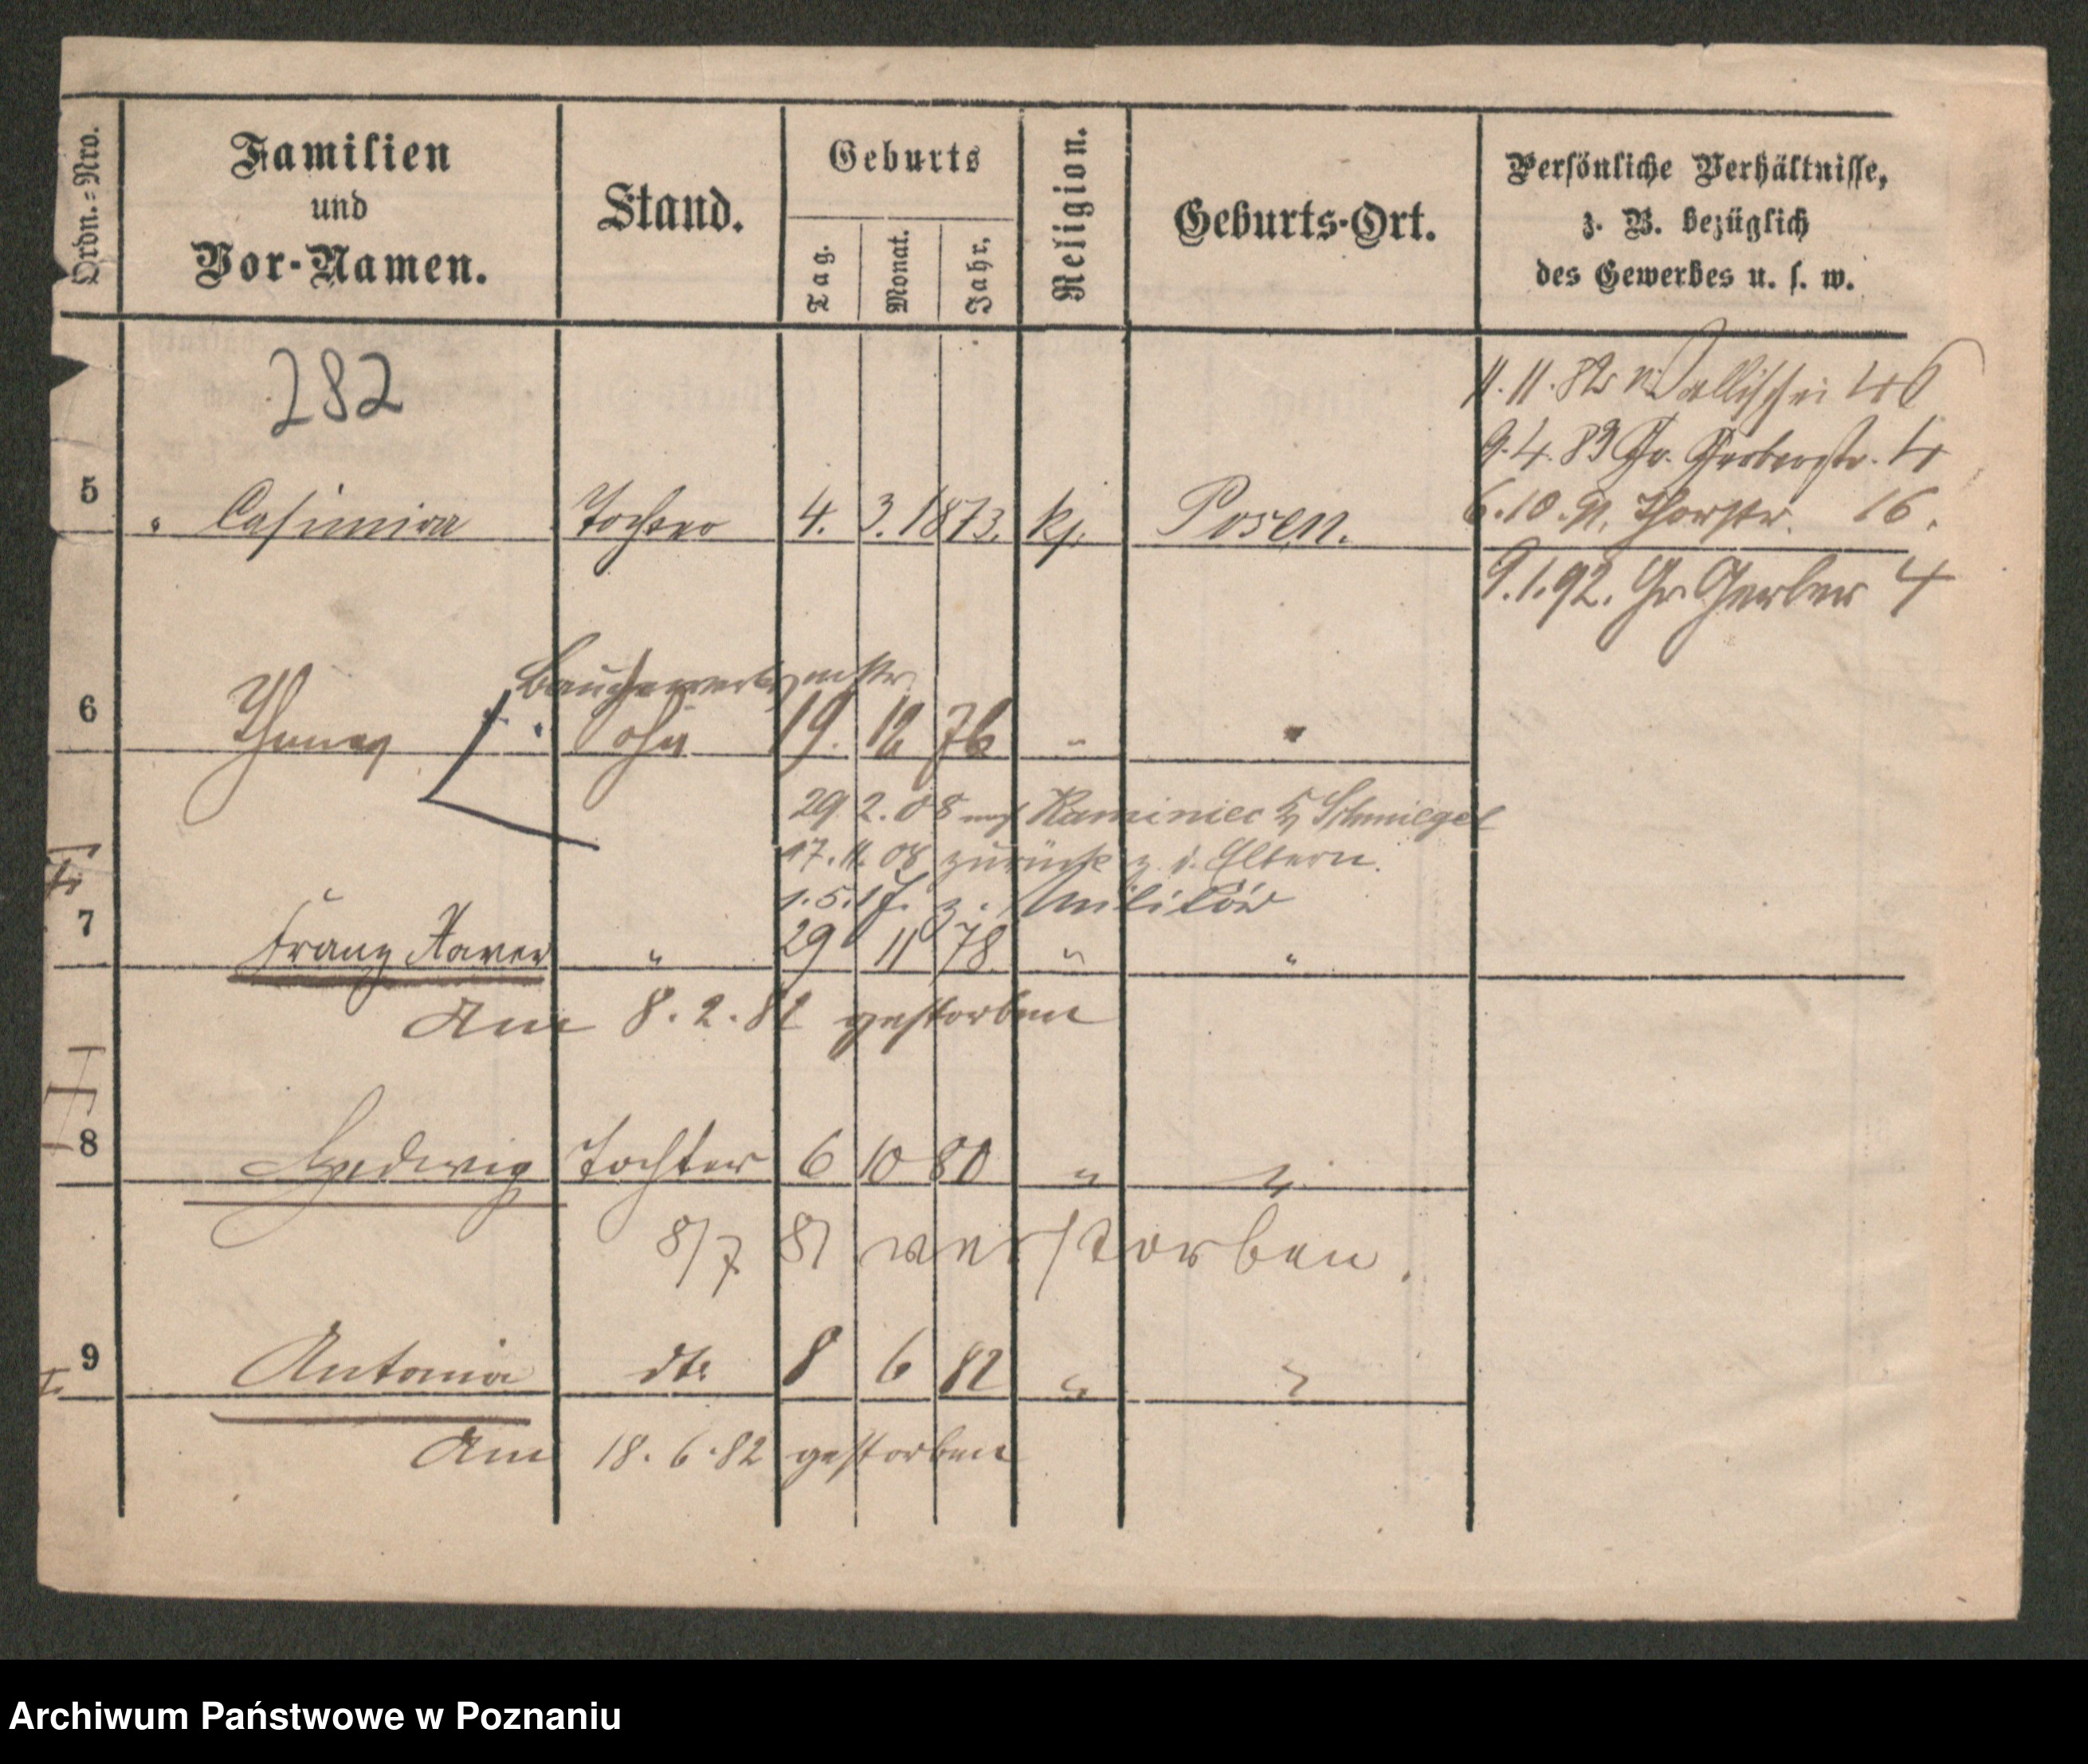 Ordn.=Nro.
Familien
und
Vor-Namen.
Stand.
Geburts
Tag.
Monat.
Jahr.
Religion.
Geburts-Ort.
Persönliche Verhältnisse,
z. B. bezüglich
des Gewerbes u. s. w.
282
11.11.82 Wallischei 46
9.4.83 Gr. Gerberstr. 4
6.10.91. Thorstr. 16.
5 " Casimira Tochter 4. 3. 1873. kj. Posen.
9.1.92. Gr. Gerber 4
Baugewerksmstr.
6 Ignaz Sohn 19. 12 76 " "
29 2. 08 nach Kaminiec Schmiegel
17.11.08 zurück z. d. Eltern.
1.5.17. z. Militär
7 Franz Xaver " 29 11 78. " "
Am 8.2.82 gestorben
8 Hedwig Tochter 6 10 80 " "
8/7 81 verstorben.
9 Antonia dto 8 6 82 " "
Am 18.6.82 gestorben
Archiwum Państwowe w Poznaniu